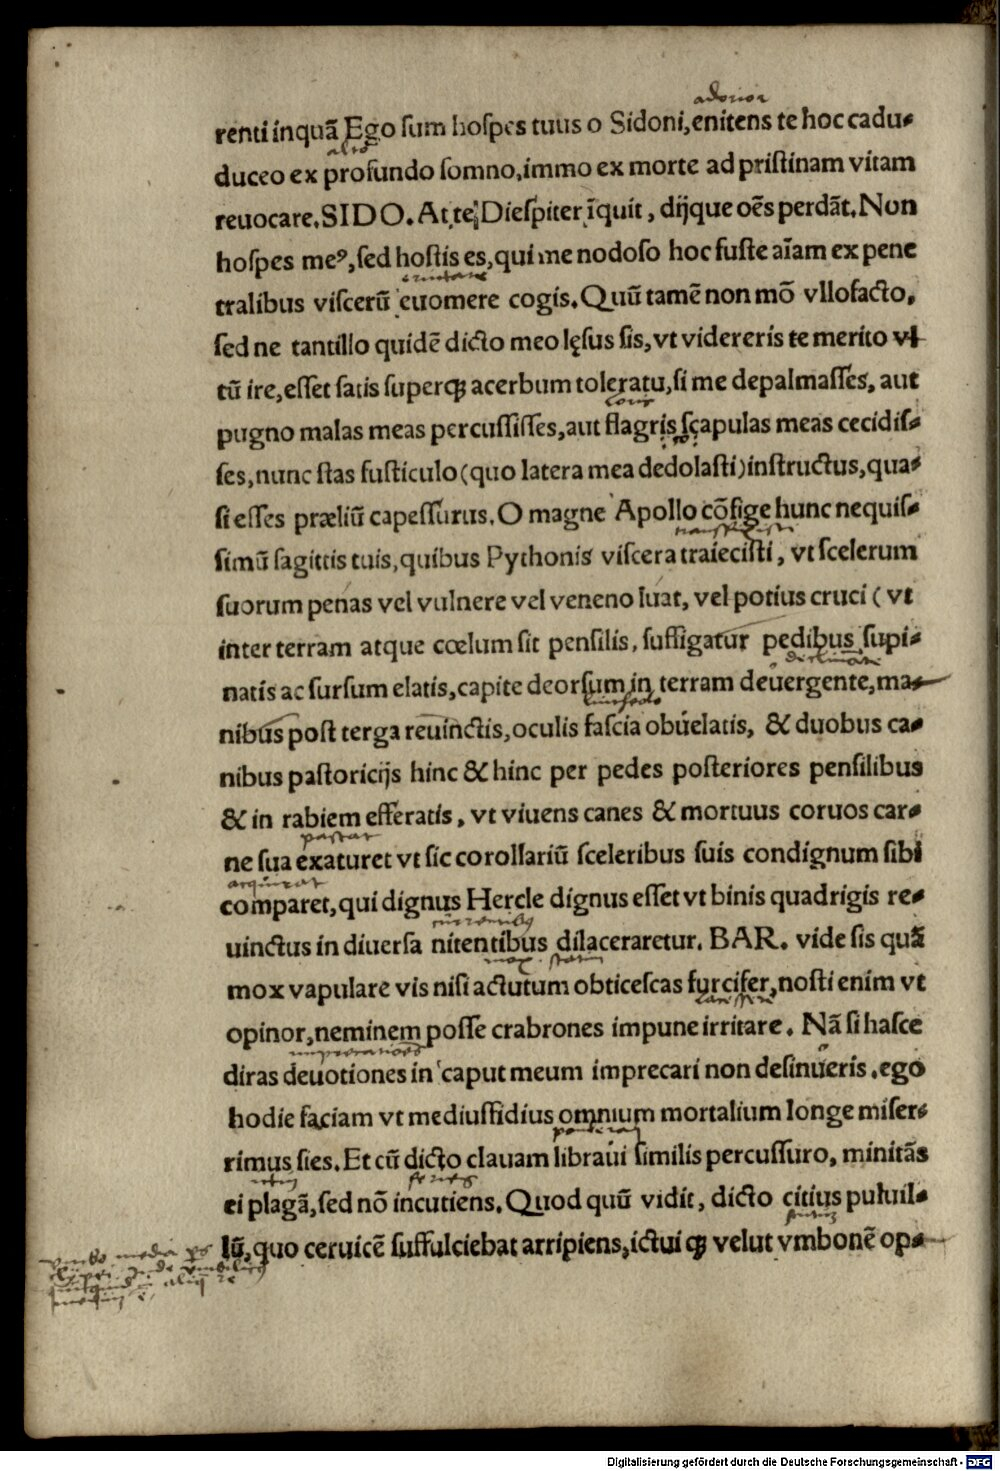 adnitor
renti inquã Ego sum hospes tuus o Sidoni,enitens te hoc cadu-
alto
duceo ex profundo somno,immo ex morte ad pristinam vitam
reuocare.SIDO. At te Diespiter ĩquit, dijque oẽs perdãt.Non
hospes meꝰ,sed hostis es,qui me nodoso hoc fuste aĩam ex pene
tralibus viscerũ euomere cogis.Quũ tamẽ non mõ vllofacto,
sed ne tantillo quidẽ dicto meo lęsus sis,vt videreris te merito vl-
tũ ire,esset satis superqꝫ acerbum toleratu,si me depalmasses, aut
pugno malas meas percussisses,aut flagris scapulas meas cecidis-
ses,nunc stas fusticulo(quo latera mea dedolasti)instructus,qua-
si esses præliũ capessurus.O magne Apollo cõfige hunc nequis-
simũ sagittis tuis,quibus Pythonis viscera traiecisti, vt scelerum
suorum penas vel vulnere vel veneno luat, vel potius cruci ( vt
inter terram atque cœlum sit pensilis, suffigatur pedibus supi-
natis ac sursum elatis,capite deorsum in terram deuergente,ma-
nibus post terga reuinctis,oculis fascia obuelatis, & duobus ca-
nibus pastoricijs hinc & hinc per pedes posteriores pensilibus
& in rabiem efferatis, vt viuens canes & mortuus coruos car-
ne sua exaturet vt sic corollariũ sceleribus suis condignum sibi
comparet,qui dignus Hercle dignus esset vt binis quadrigis re-
uinctus in diuersa nitentibus dilaceraretur. BAR. vide sis quã
mox vapulare vis nisi actutum obticescas furcifer,nosti enim vt
opinor,neminem posse crabrones impune irritare. Nã si hasce
diras deuotiones in caput meum imprecari non desinueris.ego
hodie faciam vt mediussidius omnium mortalium longe miser-
rimus sies.Et cũ dicto clauam librauĩ similis percussuro, minitãs
ei plagã,sed nõ incutiens.Quod quũ vidit, dicto citius puluil-
lũ,quo ceruicẽ suffulciebat arripiens,ictui qꝫ velut vmbonẽ op-
Digitalisierung gefördert durch die Deutsche Forschungsgemeinschaft - DFG